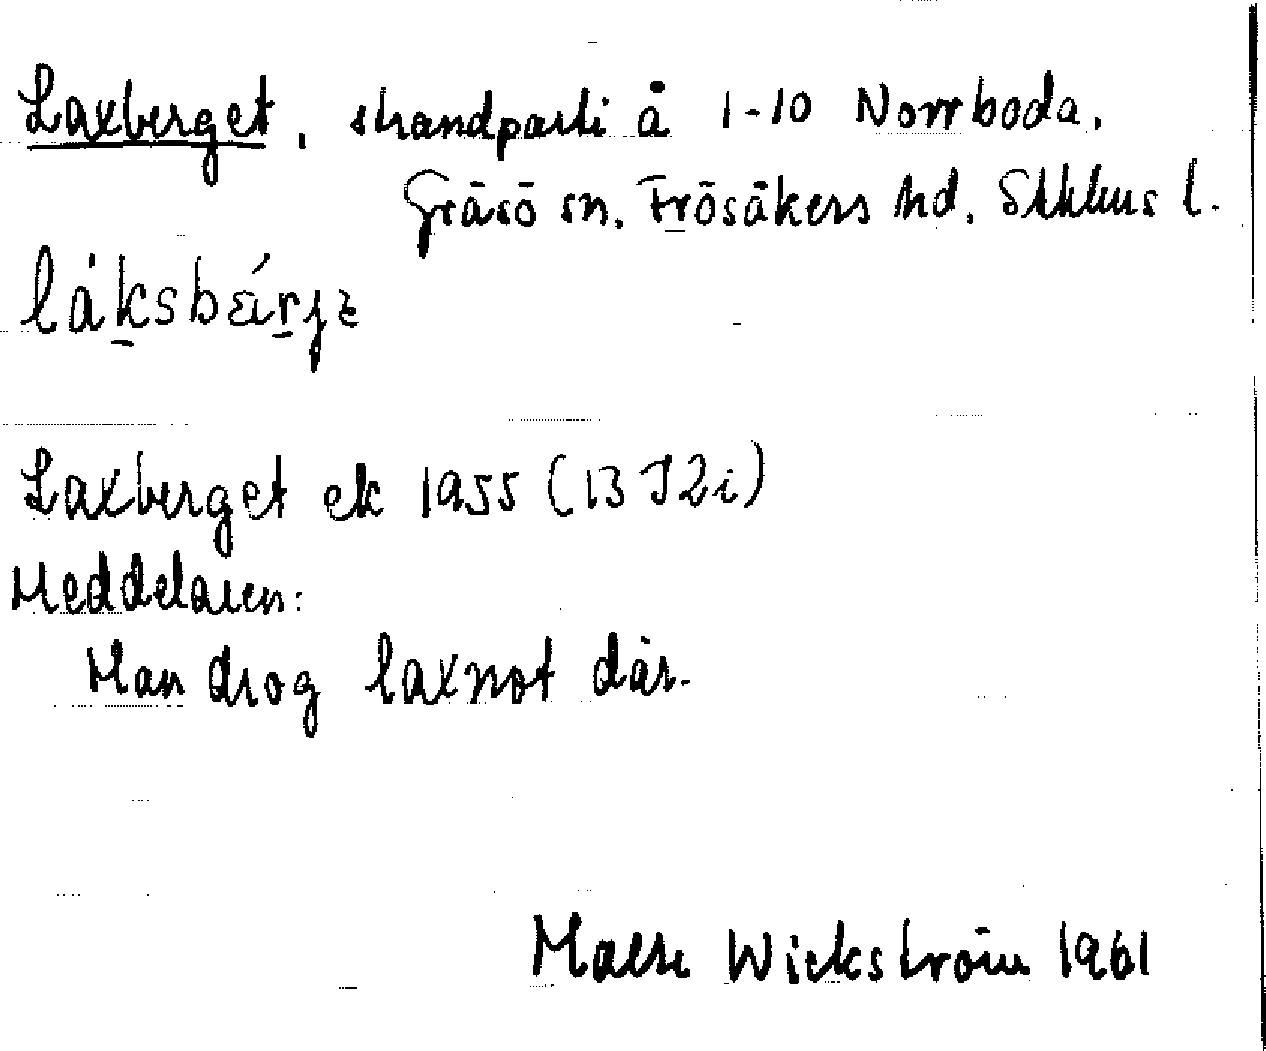 Laxberget, strandparti å 1-10 Norrboda,
Gräsö sn. Frösåkers hd. Sthlms l.
láksbærjɛ
Laxberget ek 1955 (13 J2i)
Meddelaren:
Man drog laxnot där.
Wickström 1961